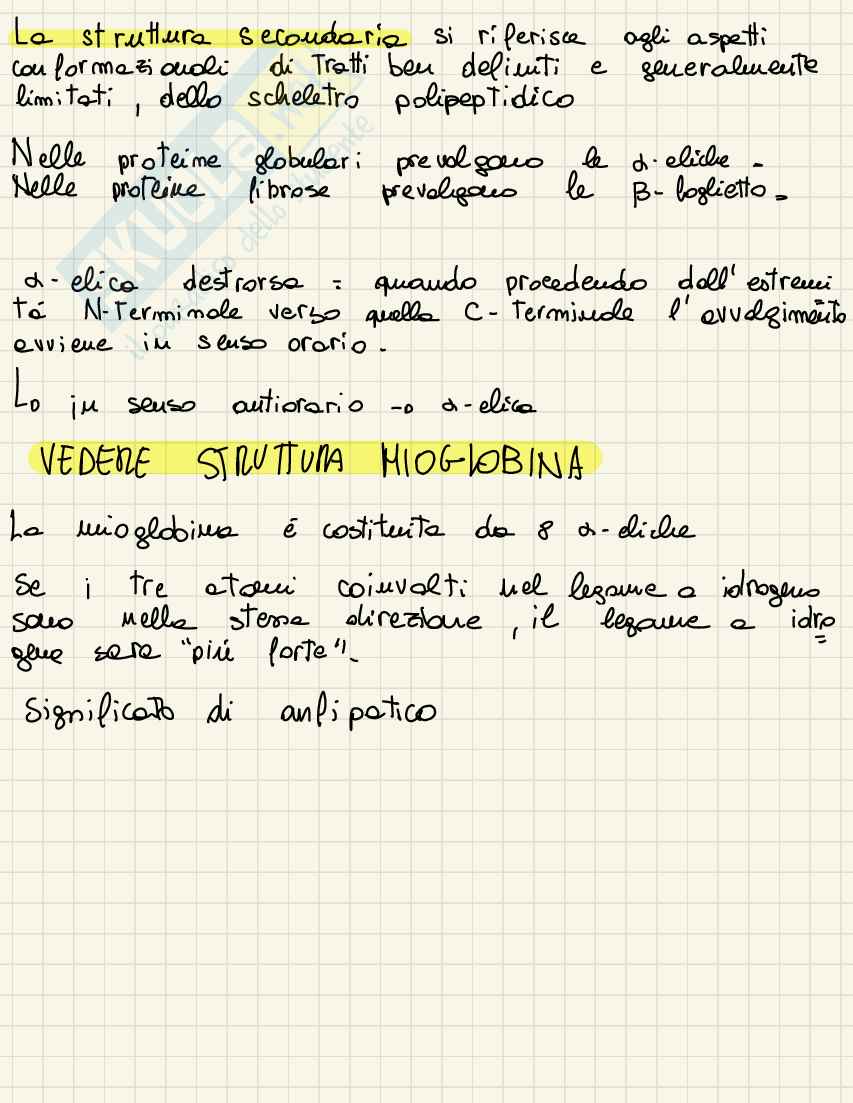 La struttura secondaria si riferisce agli aspetti
conformazionali di Tratti ben definiti e generalmente
limitati, dello scheletro polipeptidico
Nelle proteine globulari prevalgono le α-eliche -
Nelle proteine fibrose prevalgono le β-foglietto -
α-elica destrorsa : quando procedendo dall'estremi
tá N-Terminale verso quella C-Terminale l'avvolgimento
avviene in senso orario.
Lo in senso antiorario -o α-elica
VEDERE STRUTTURA MIOGLOBINA
La mioglobina é costituita da 8 α-eliche
Se i tre atomi coinvolti nel legame a idrogeno
sono nella stessa direzione, il legame a idro
geno sara "piú forte".
Significato di anfipatico
SKUOLA.net
il paradiso dello studente